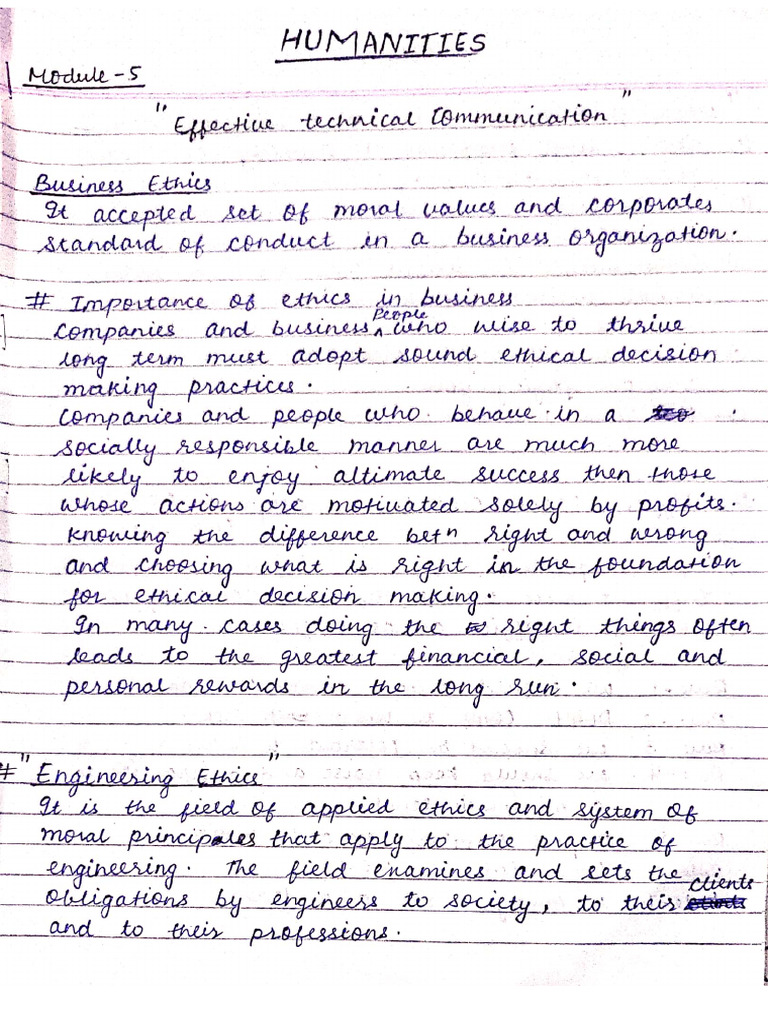 HUMANITIES
Module-5
"Effective technical Communication"
Business Ethics
It accepted set of moral values and corporates
standard of conduct in a business organization.
# Importance of ethics in business
Companies and business People who wise to thrive
long term must adopt sound ethical decision
making practices.
Companies and people who behave in a
socially responsible manner are much more
likely to enjoy altimate success then those
whose actions are motivated solely by profits.
Knowing the difference betn right and wrong
and choosing what is right in the foundation
for ethical decision making.
In many cases doing the right things often
leads to the greatest financial, social and
personal rewards in the long run.
# "Engineering Ethics"
It is the field of applied ethics and system of
moral principles that apply to the practice of
engineering. The field examines and sets the
obligations by engineers to society, to their clients
and to their professions.